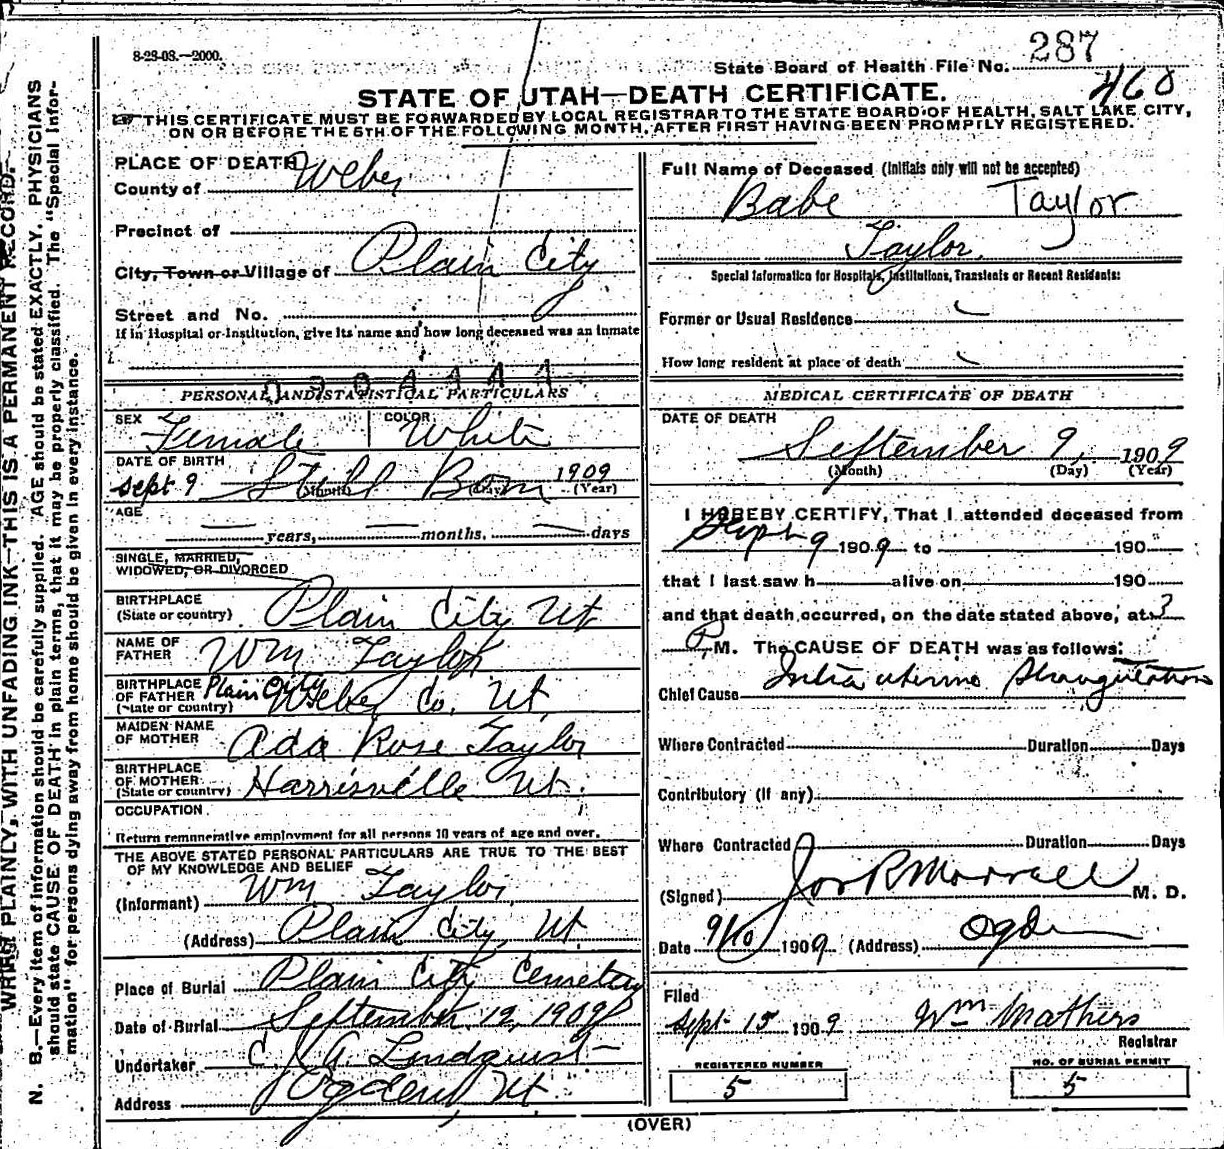 8-23-08.—2000.
State Board of Health File No. 287
460
STATE OF UTAH—DEATH CERTIFICATE.
THIS CERTIFICATE MUST BE FORWARDED BY LOCAL REGISTRAR TO THE STATE BOARD OF HEALTH, SALT LAKE CITY,
ON OR BEFORE THE 5TH OF THE FOLLOWING MONTH, AFTER FIRST HAVING BEEN PROMPTLY REGISTERED.
WRITE PLAINLY, WITH UNFADING INK—THIS IS A PERMANENT RECORD.
N. B.—Every item of information should be carefully supplied. AGE should be stated EXACTLY. PHYSICIANS
should state CAUSE OF DEATH in plain terms, that it may be properly classified. The "Special Infor-
mation" for persons dying away from home should be given in every instance.
PLACE OF DEATH
County of Weber
Precinct of
City, Town or Village of Plain City
Street and No.
If in Hospital or Institution, give its name and how long deceased was an inmate
PERSONAL AND STATISTICAL PARTICULARS
SEX Female COLOR White
DATE OF BIRTH
Sept 9 Still Born 1909
(Month) (Day) (Year)
AGE
years, months, days
SINGLE, MARRIED,
WIDOWED, OR DIVORCED
BIRTHPLACE
(State or country) Plain City Ut
NAME OF
FATHER Wm Taylor
BIRTHPLACE
OF FATHER Plain City
(State or country) Weber Co. Ut
MAIDEN NAME
OF MOTHER Ada Rose Taylor
BIRTHPLACE
OF MOTHER
(State or country) Harrisville Ut.
OCCUPATION
Return remunerative employment for all persons 10 years of age and over.
THE ABOVE STATED PERSONAL PARTICULARS ARE TRUE TO THE BEST
OF MY KNOWLEDGE AND BELIEF
(Informant) Wm Taylor
(Address) Plain City, Ut.
Place of Burial Plain City Cemetery
Date of Burial September 12, 1909
Undertaker C. J. A. Lindquist
Address Ogden, Ut
Full Name of Deceased (Initials only will not be accepted)
Babe Taylor
Taylor
Special Information for Hospitals, Institutions, Transients or Recent Residents:
Former or Usual Residence
How long resident at place of death
MEDICAL CERTIFICATE OF DEATH
DATE OF DEATH
September 9, 1909
(Month) (Day) (Year)
I HEREBY CERTIFY, That I attended deceased from
Sept 9 1909 to 190
that I last saw h alive on 190
and that death occurred, on the date stated above, at 3
P. M. The CAUSE OF DEATH was as follows:
Chief Cause Intra uterine Strangulation
Where Contracted Duration Days
Contributory (if any)
Where Contracted Duration Days
(Signed) Jos R Morrell M. D.
Date 9/10 1909 (Address) Ogden
Filed
Sept 15 1909 Wm Mathers
Registrar
REGISTERED NUMBER
5
NO. OF BURIAL PERMIT
5
(OVER)